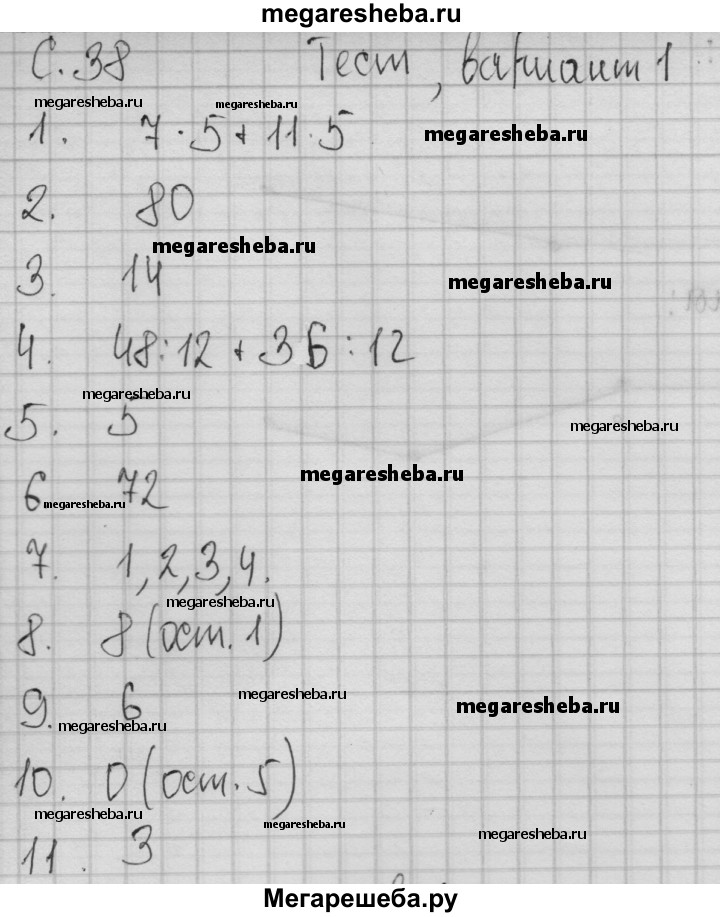 megaresheba.ru
С. 38 Тест, вариант 1
megaresheba.ru megaresheba.ru
1. 7 · 5 + 11 · 5 megaresheba.ru
2. 80
megaresheba.ru
3. 14 megaresheba.ru
4. 48 : 12 + 36 : 12
megaresheba.ru
5. 5 megaresheba.ru
megaresheba.ru
6 megaresheba.ru 72
7. 1, 2, 3, 4.
megaresheba.ru
8. 8 (ост. 1)
9. 6 megaresheba.ru megaresheba.ru
megaresheba.ru
10. 0 (ост. 5)
megaresheba.ru megaresheba.ru
11. 3 megaresheba.ru
Мегарешеба.ру